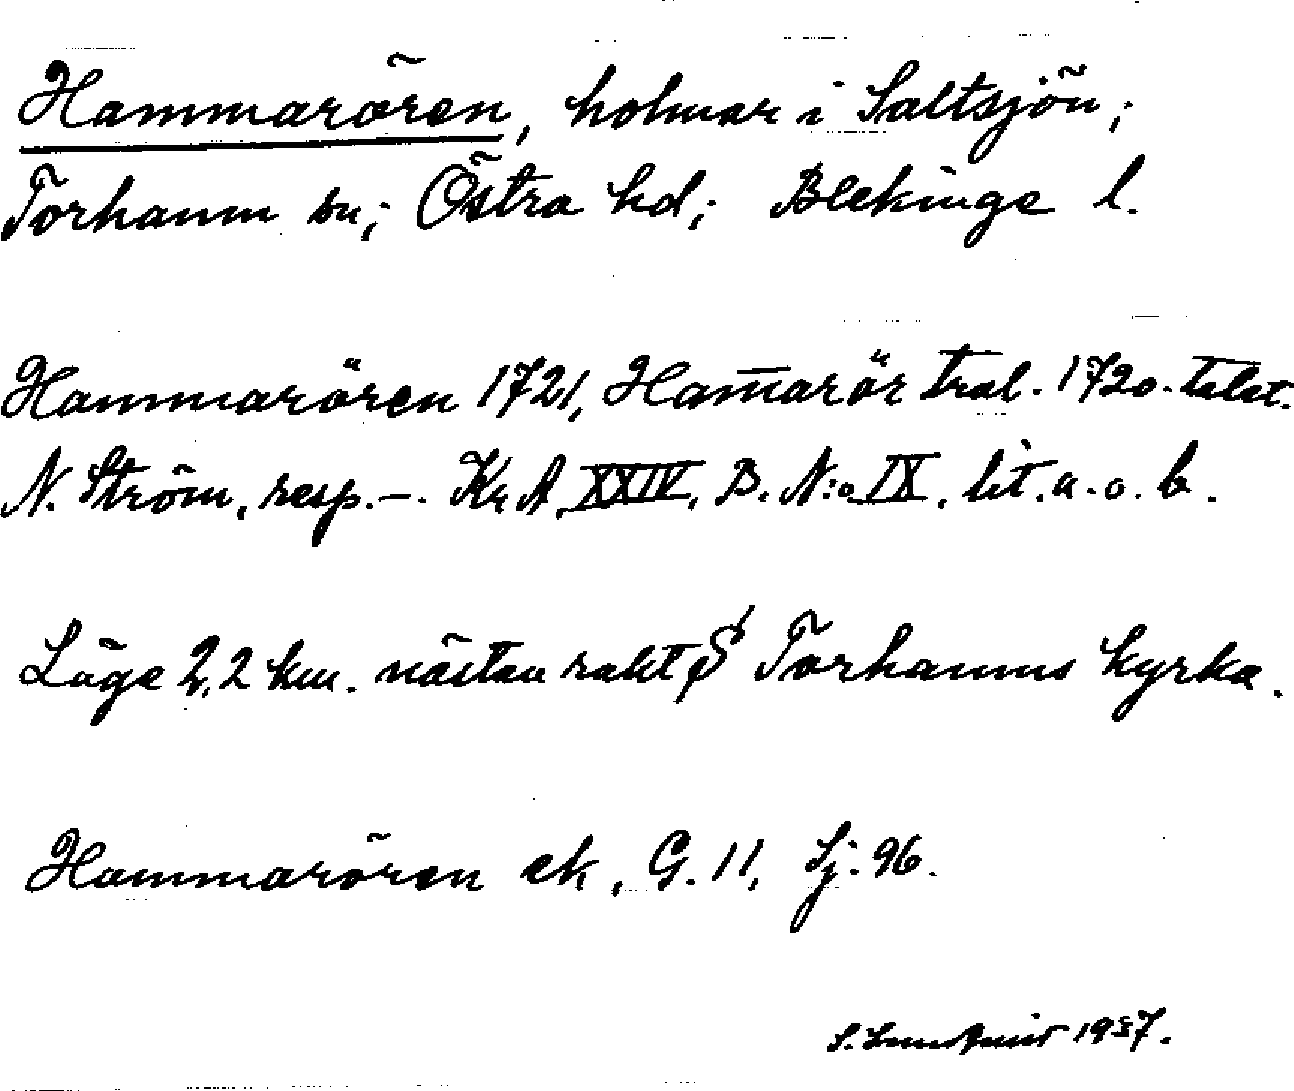 Hammarören, holmar i Saltsjön;
Torhamn sn; Östra hd; Blekinge l.
Hammarören 1721, Ham̅arör tral. 1720-talet.
N. Ström, resp. —. Kr A, XXIV, B. N:o IX. lit. a. o. b.
Läge 2,2 km. nästan rakt S Torhamns kyrka.
Hammarören ek, G. 11, Sj. 96.
S. Lundquist 1937.